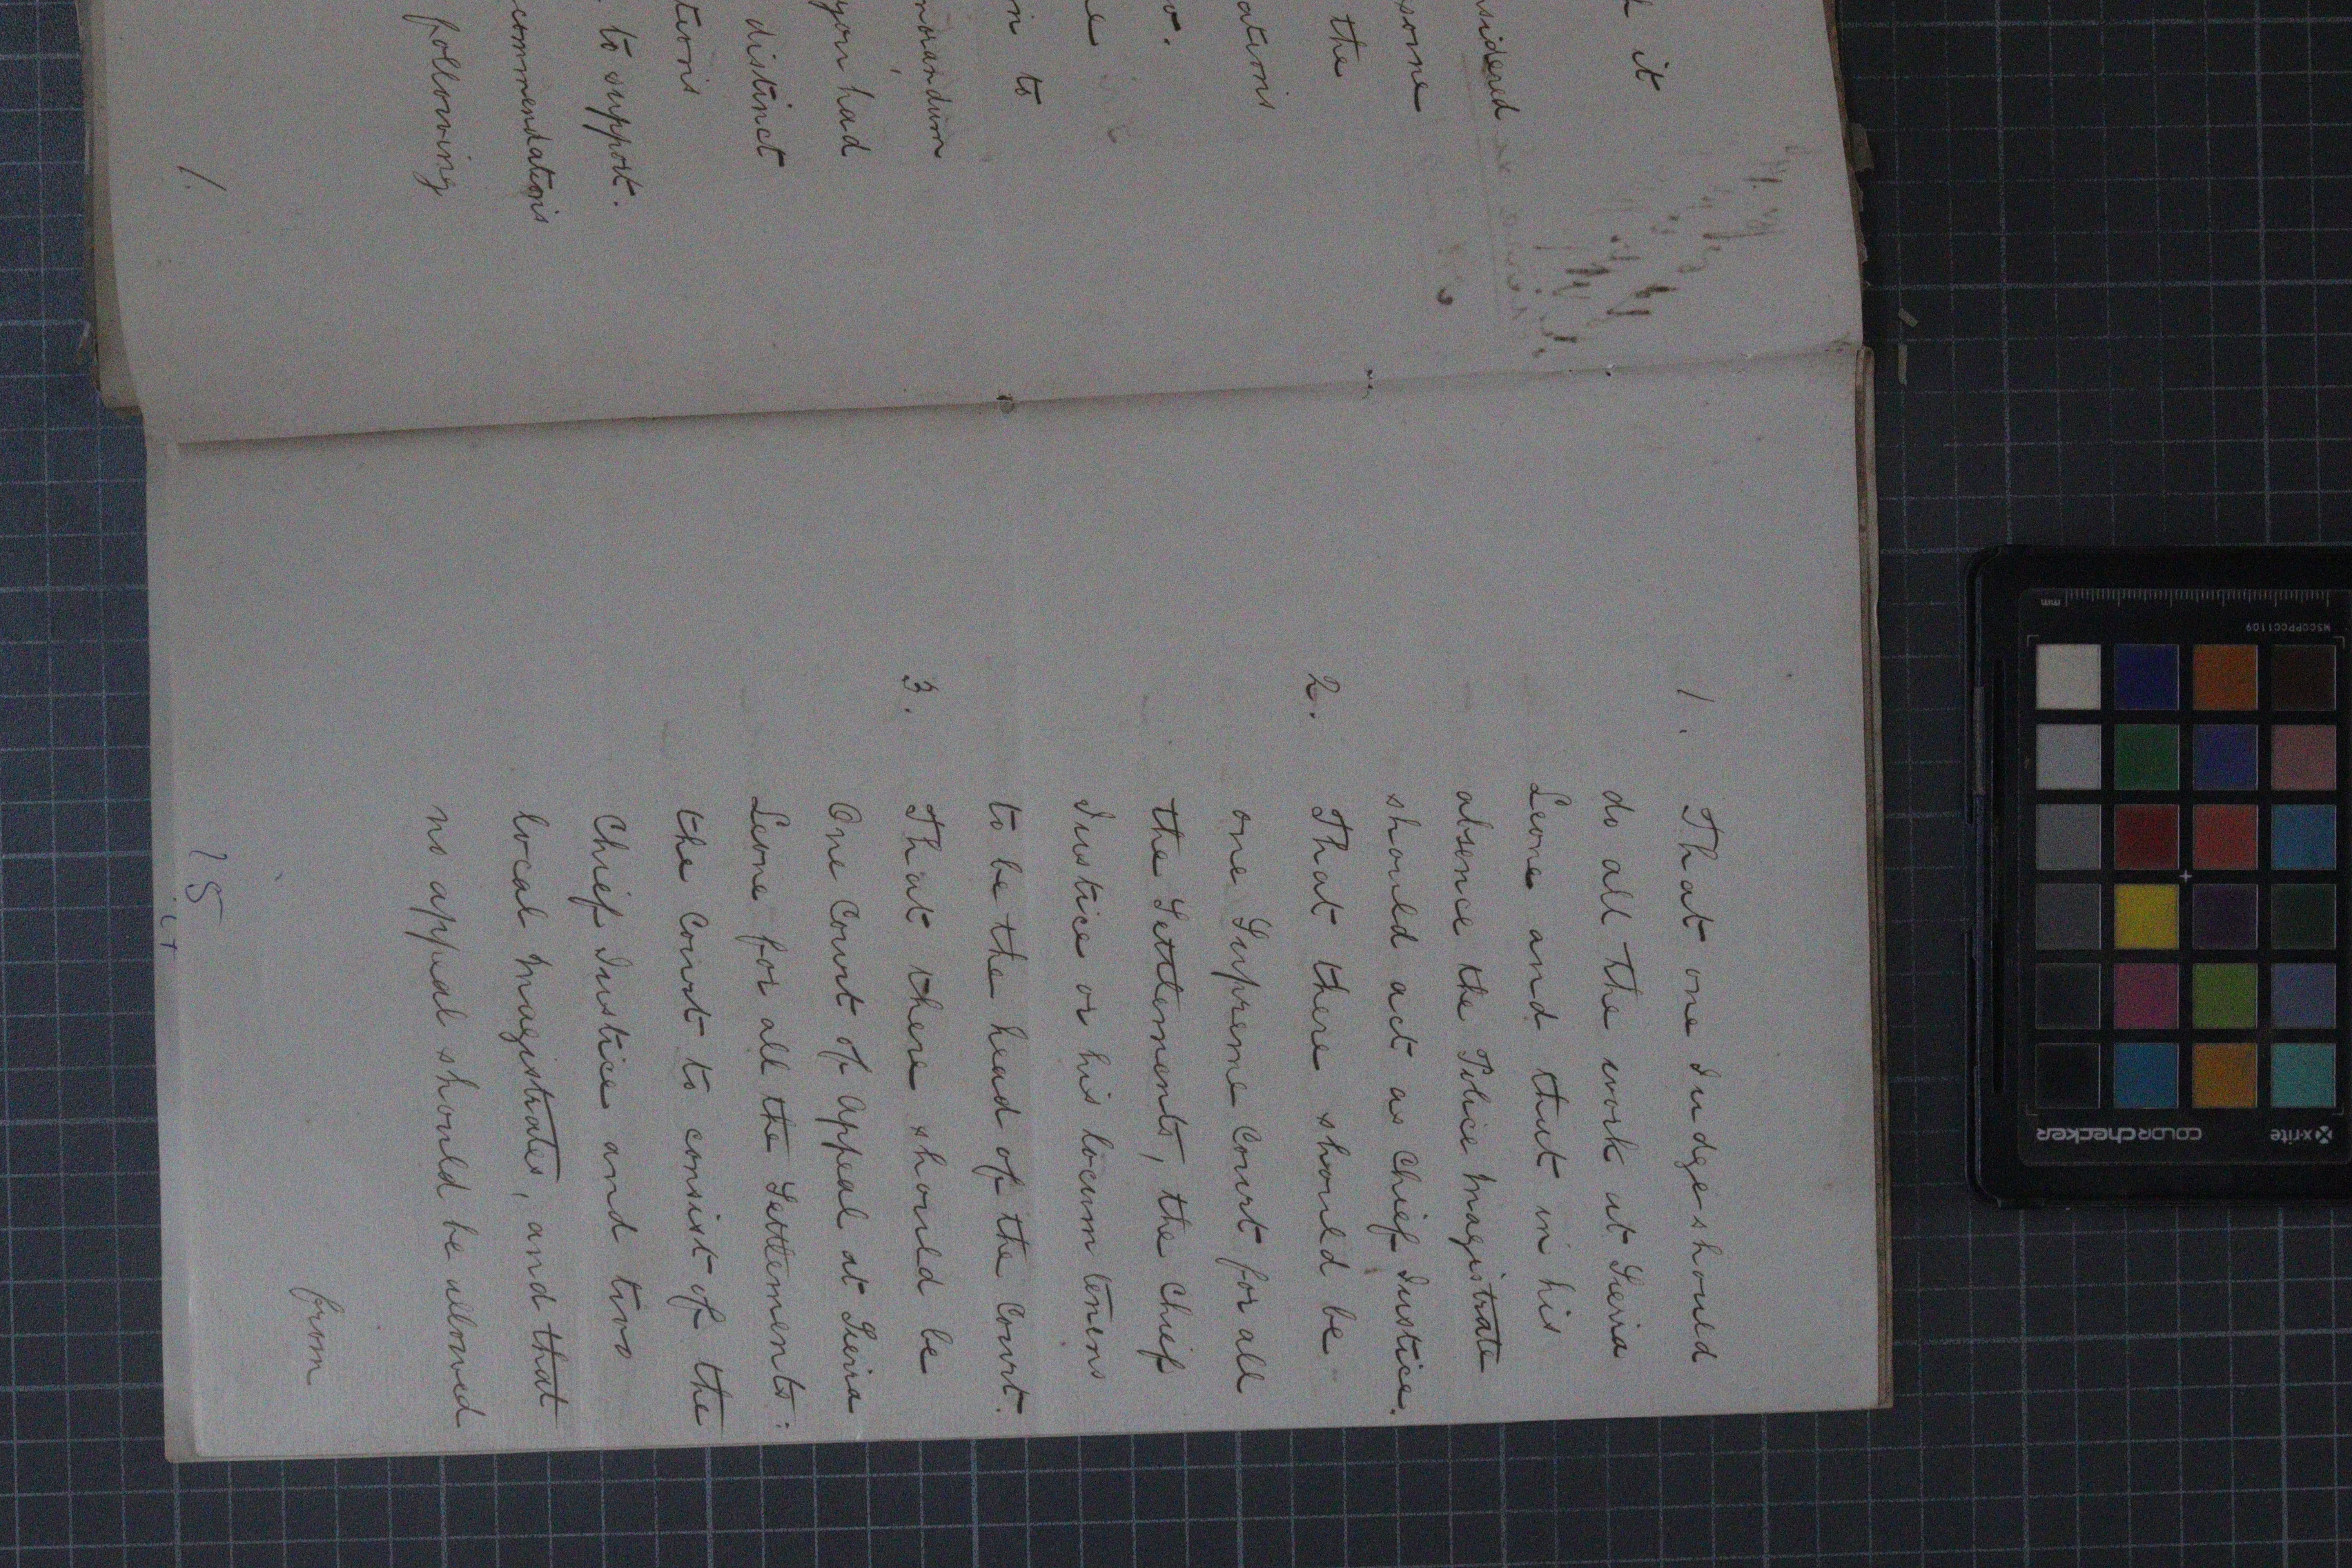 it
sidered
some
the
ations
in to
morandum
you had
distinct
tions
to support.
commendations
following
1.
1. That one Judge should
do all the work at Sierra
Leone and that in his
absence the Police Magistrate
should act as Chief Justice.
2. That there should be
one Supreme Court for all
the Settlements, the Chief
Justice or his locum tenens
to be the head of the Court.
3. That there should be
One Court of Appeal at Sierra
Leone for all the Settlements:
the Court to consist of the
Chief Justice and two
local Magistrates, and that
no appeal should be allowed
from
15
mm
MSCCPPCC1109
x-rite
colorchecker